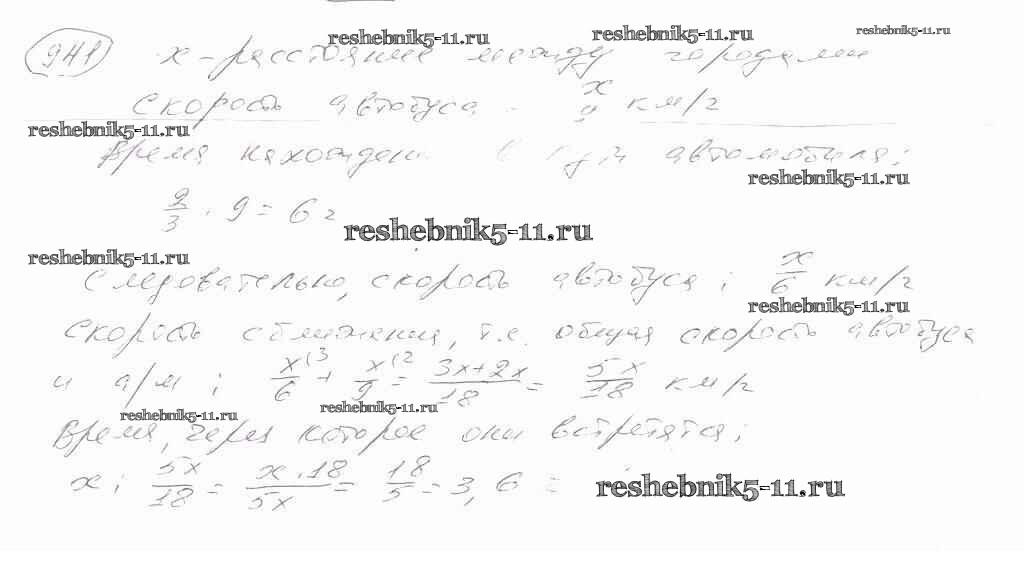 reshebnik5-11.ru reshebnik5-11.ru reshebnik5-11.ru
941 x - расстояние между городами
Скорость автобуса - x/9 км/г
reshebnik5-11.ru
Время нахожден. автомобиля:
reshebnik5-11.ru
2/3 · 9 = 6 г
reshebnik5-11.ru
reshebnik5-11.ru
Следовательно, скорость автобуса: x/6 км/г
reshebnik5-11.ru
Скорость сближения, т.е. общая скорость автобуса
и а/м: x/6 (3 + x/9 (2 = 3x+2x/18 = 5x/18 км/г
reshebnik5-11.ru reshebnik5-11.ru
Время, через которое они встретятся:
x : 5x/18 = x·18/5x = 18/5 = 3,6 =
reshebnik5-11.ru